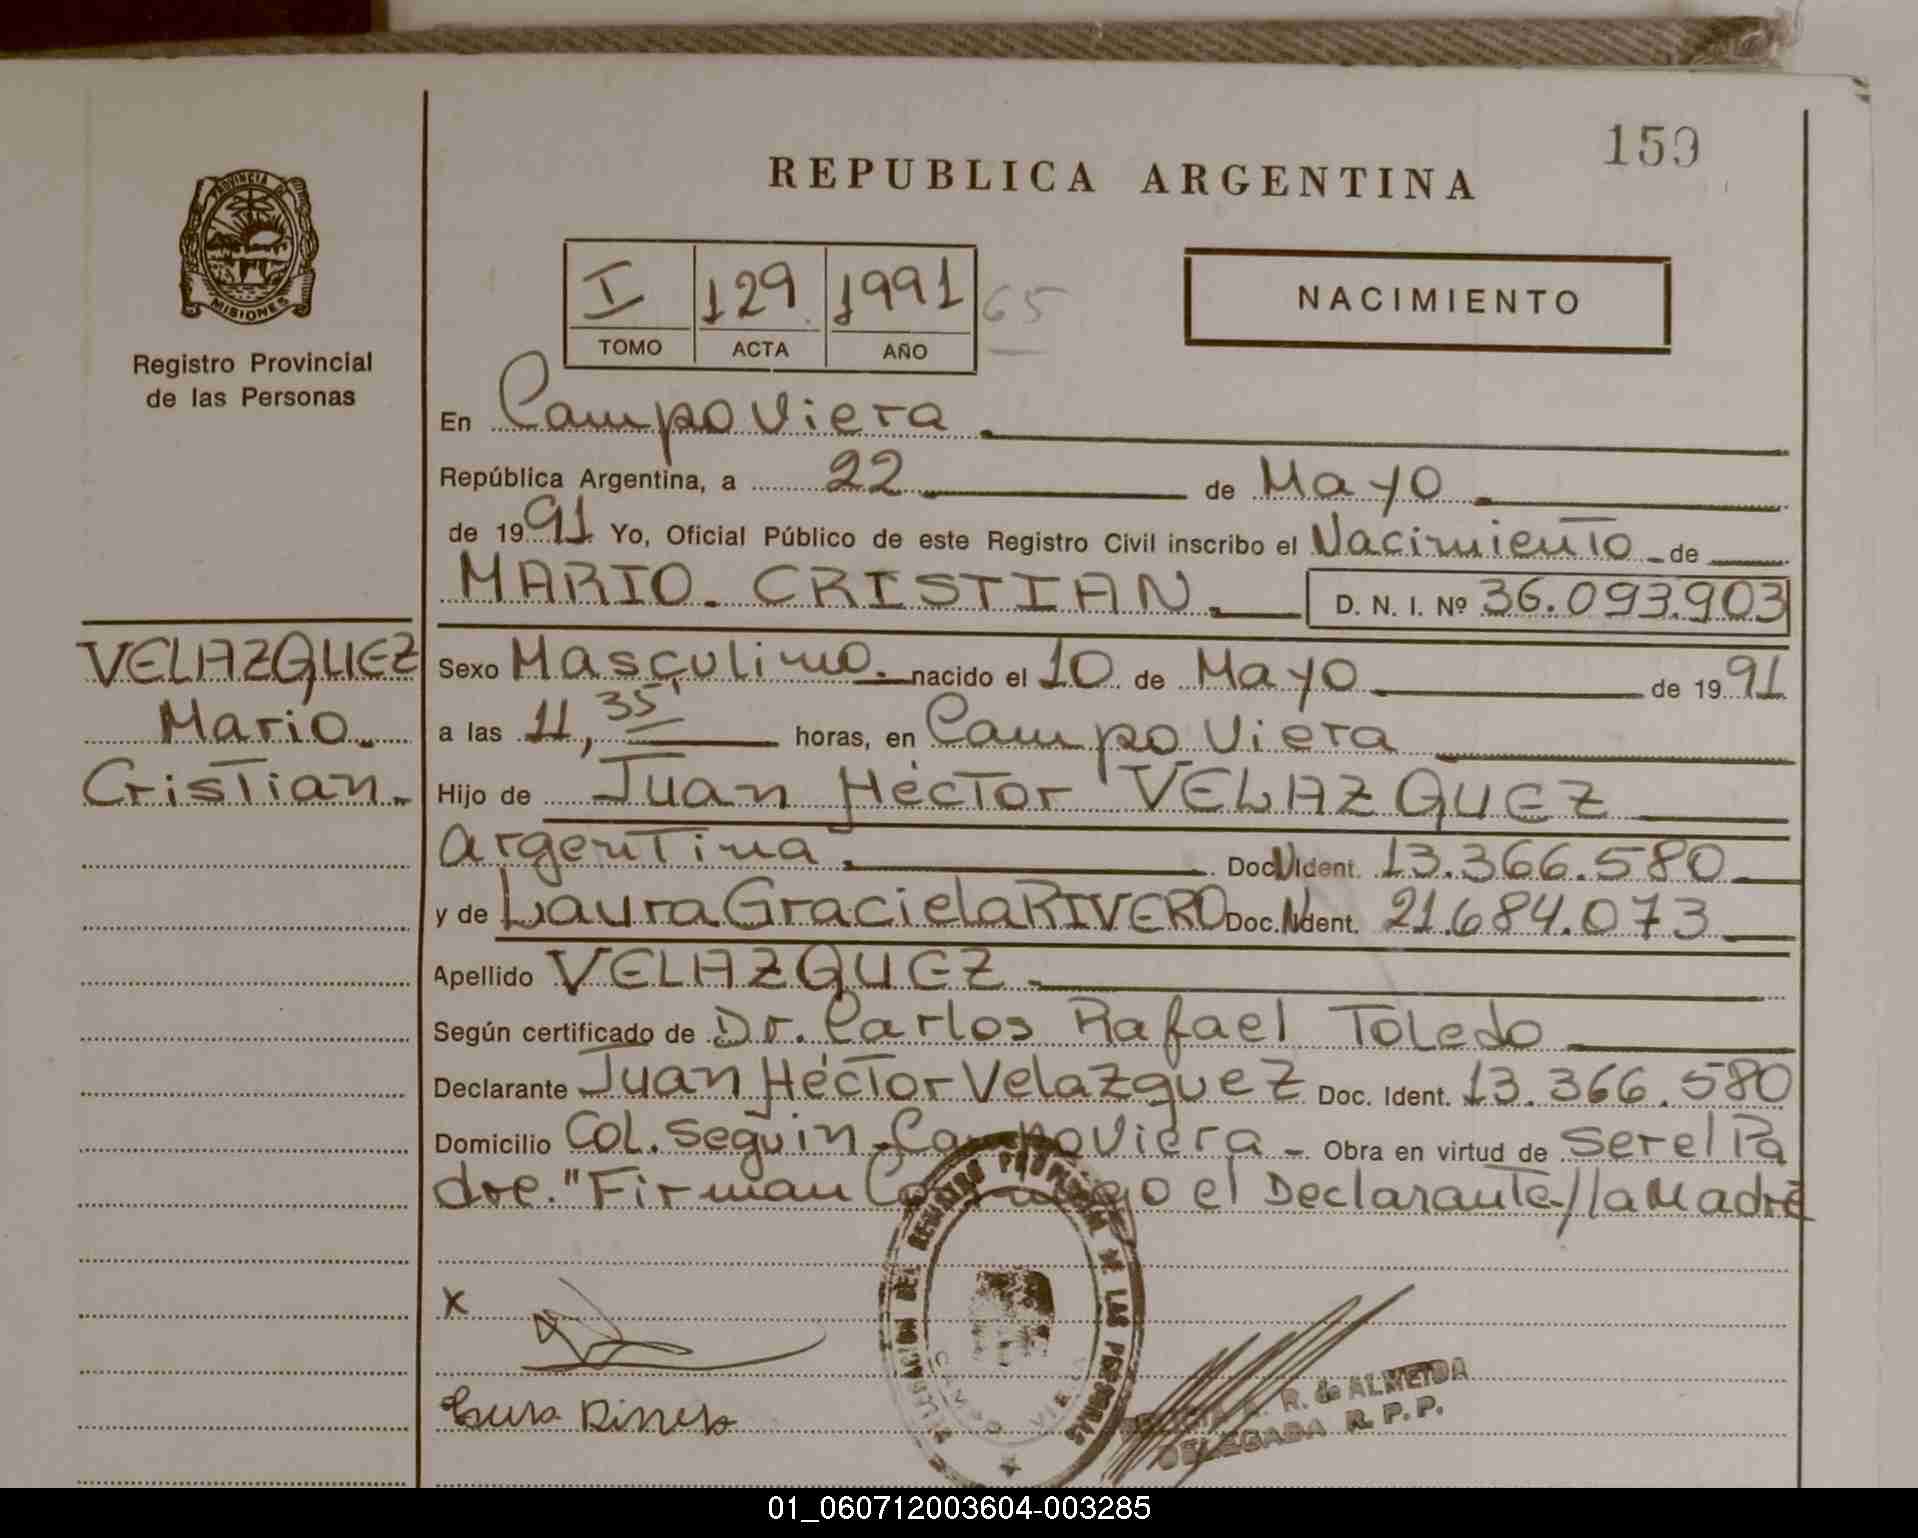 159
REPUBLICA ARGENTINA
PROVINCIA DE
MISIONES
Registro Provincial
de las Personas
I 129 1991 65
TOMO ACTA AÑO
NACIMIENTO
En Campo Viera
República Argentina, a 22 de Mayo
de 1991 Yo, Oficial Público de este Registro Civil inscribo el Nacimiento de
MARIO CRISTIAN D. N. I. Nº 36.093.903
VELAZQUEZ
Mario
Cristian
Sexo Masculino. nacido el 10 de Mayo de 1991
a las 11, 35' horas, en Campo Viera
Hijo de Juan Héctor VELAZQUEZ
Argentina Doc. Ident. 13.366.580
y de Laura Graciela RIVERO Doc. Ident. 21.684.073
Apellido VELAZQUEZ
Según certificado de Dr. Carlos Rafael Toledo
Declarante Juan Héctor Velazquez Doc. Ident. 13.366.580
Domicilio Col. Seguin - Campo Viera - Obra en virtud de Ser el Pa
dre. "Firman Conmigo el Declarante//la Madre
X
R. de ALMEIDA
DELEGADA R. P. P.
DEL REGISTRO PROVINCIAL DE LAS PERSONAS
CAMPO VIERA
01_060712003604-003285